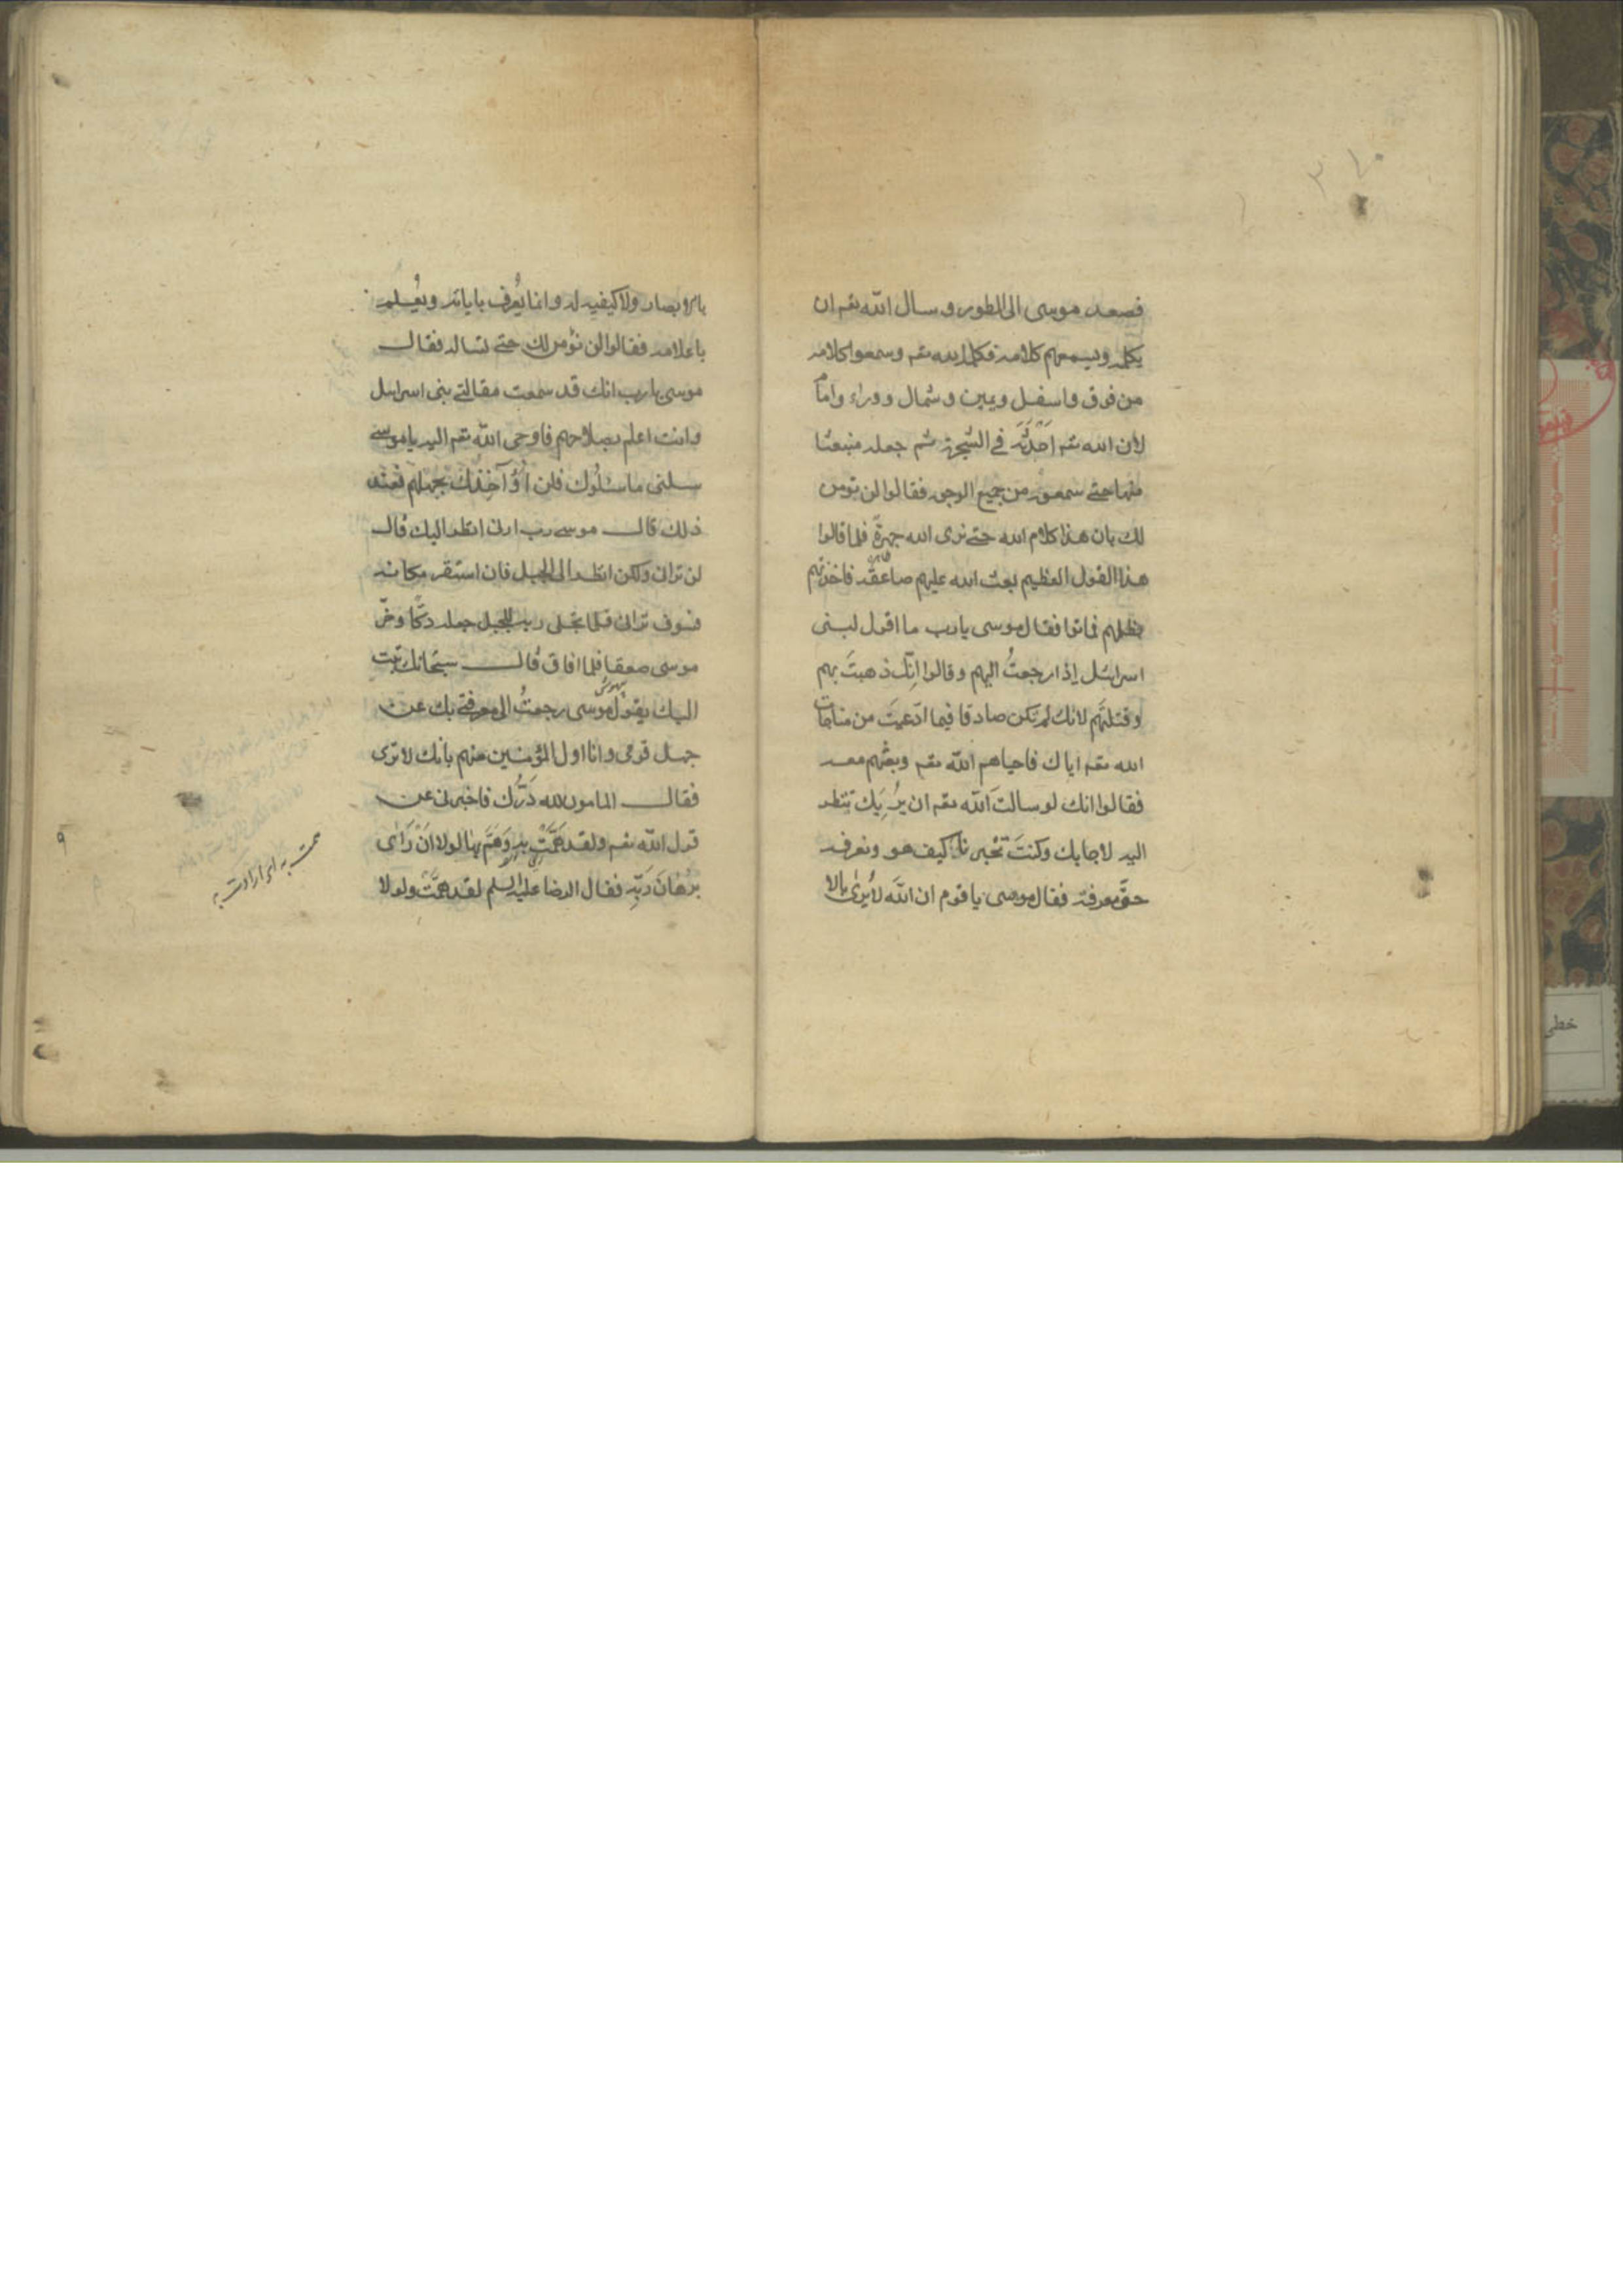 فصعد موسى الى الطور و سال الله تعم ان
يكلمه ويسمعهم كلامه فكلمه الله تعم وسمعوا كلامه
من فوق واسفل ويمين وشمال ووراء وامام
لان الله تعم احدثه في الشجرة ثم جعله منبعثا
منها حتى سمعوه من جميع الوجوه فقالوا لن نومن
لك بان هذا كلام الله حتى نرى الله جهرةً فلما قالوا
هذا القول العظيم بعث الله عليهم صاعقه فاخذتهم
بظلمهم فماتوا فقال موسى يا رب ما اقول لبنى
اسرائيل إذا رجعتُ اليهم وقالوا انّك ذهبتَ بهم
وقتلتَهم لانك لم تكن صادقا فيما ادّعيتَ من مناجات
الله تعم اياك فاحياهم الله تعم وبعثهم معه
فقالوا انك لو سالتَ الله تعم ان يُرِيَك تنظر
اليه لاجابك وكنتَ تخبرنا كيف هو ونعرفه
حقَّ معرفته فقال موسى يا قوم ان اللهَ لا يُرىٰ بالا
بالابصار ولا كيفيه له وانما يُعرف باياته ويُعلم
باعلامه فقالوا لن نؤمن لك حتى تساله فقال
موسى يا رب انك قد سمعت مقالتى بنى اسرائيل
وانت اعلم بصلاحهم فاوحى الله تعم اليه يا موسى
سلنى ما سئلوك فلن اُؤآخِذك بجهلهم فعند
ذلك قال موسى رب ارنى انظر اليك قال
لن ترانى ولكن انظر الى الجبل فان استقر مكانه
فسوف ترانى فلما تجلى ربه للجبل جعله دكّاً وخرّ
موسى صعقا فلما افاق قال سبحانك تبت
اليك يقول موسى رجعتُ الى معرفتى بك عن
جهل قومى وانا اول المؤمنين منهم بانك لا ترى
فقال المامون لله دَرُّك فاخبرنى عن
قول الله تعم ولقد هَمَّتْ بِهِ وَهَمَّ بِهٰا لولا اَنْ رَاٰى
بُرهٰانَ رَبِّهِ فقال الرضا عليه السلم لقد همَّتْ ولولا
٩
خطى